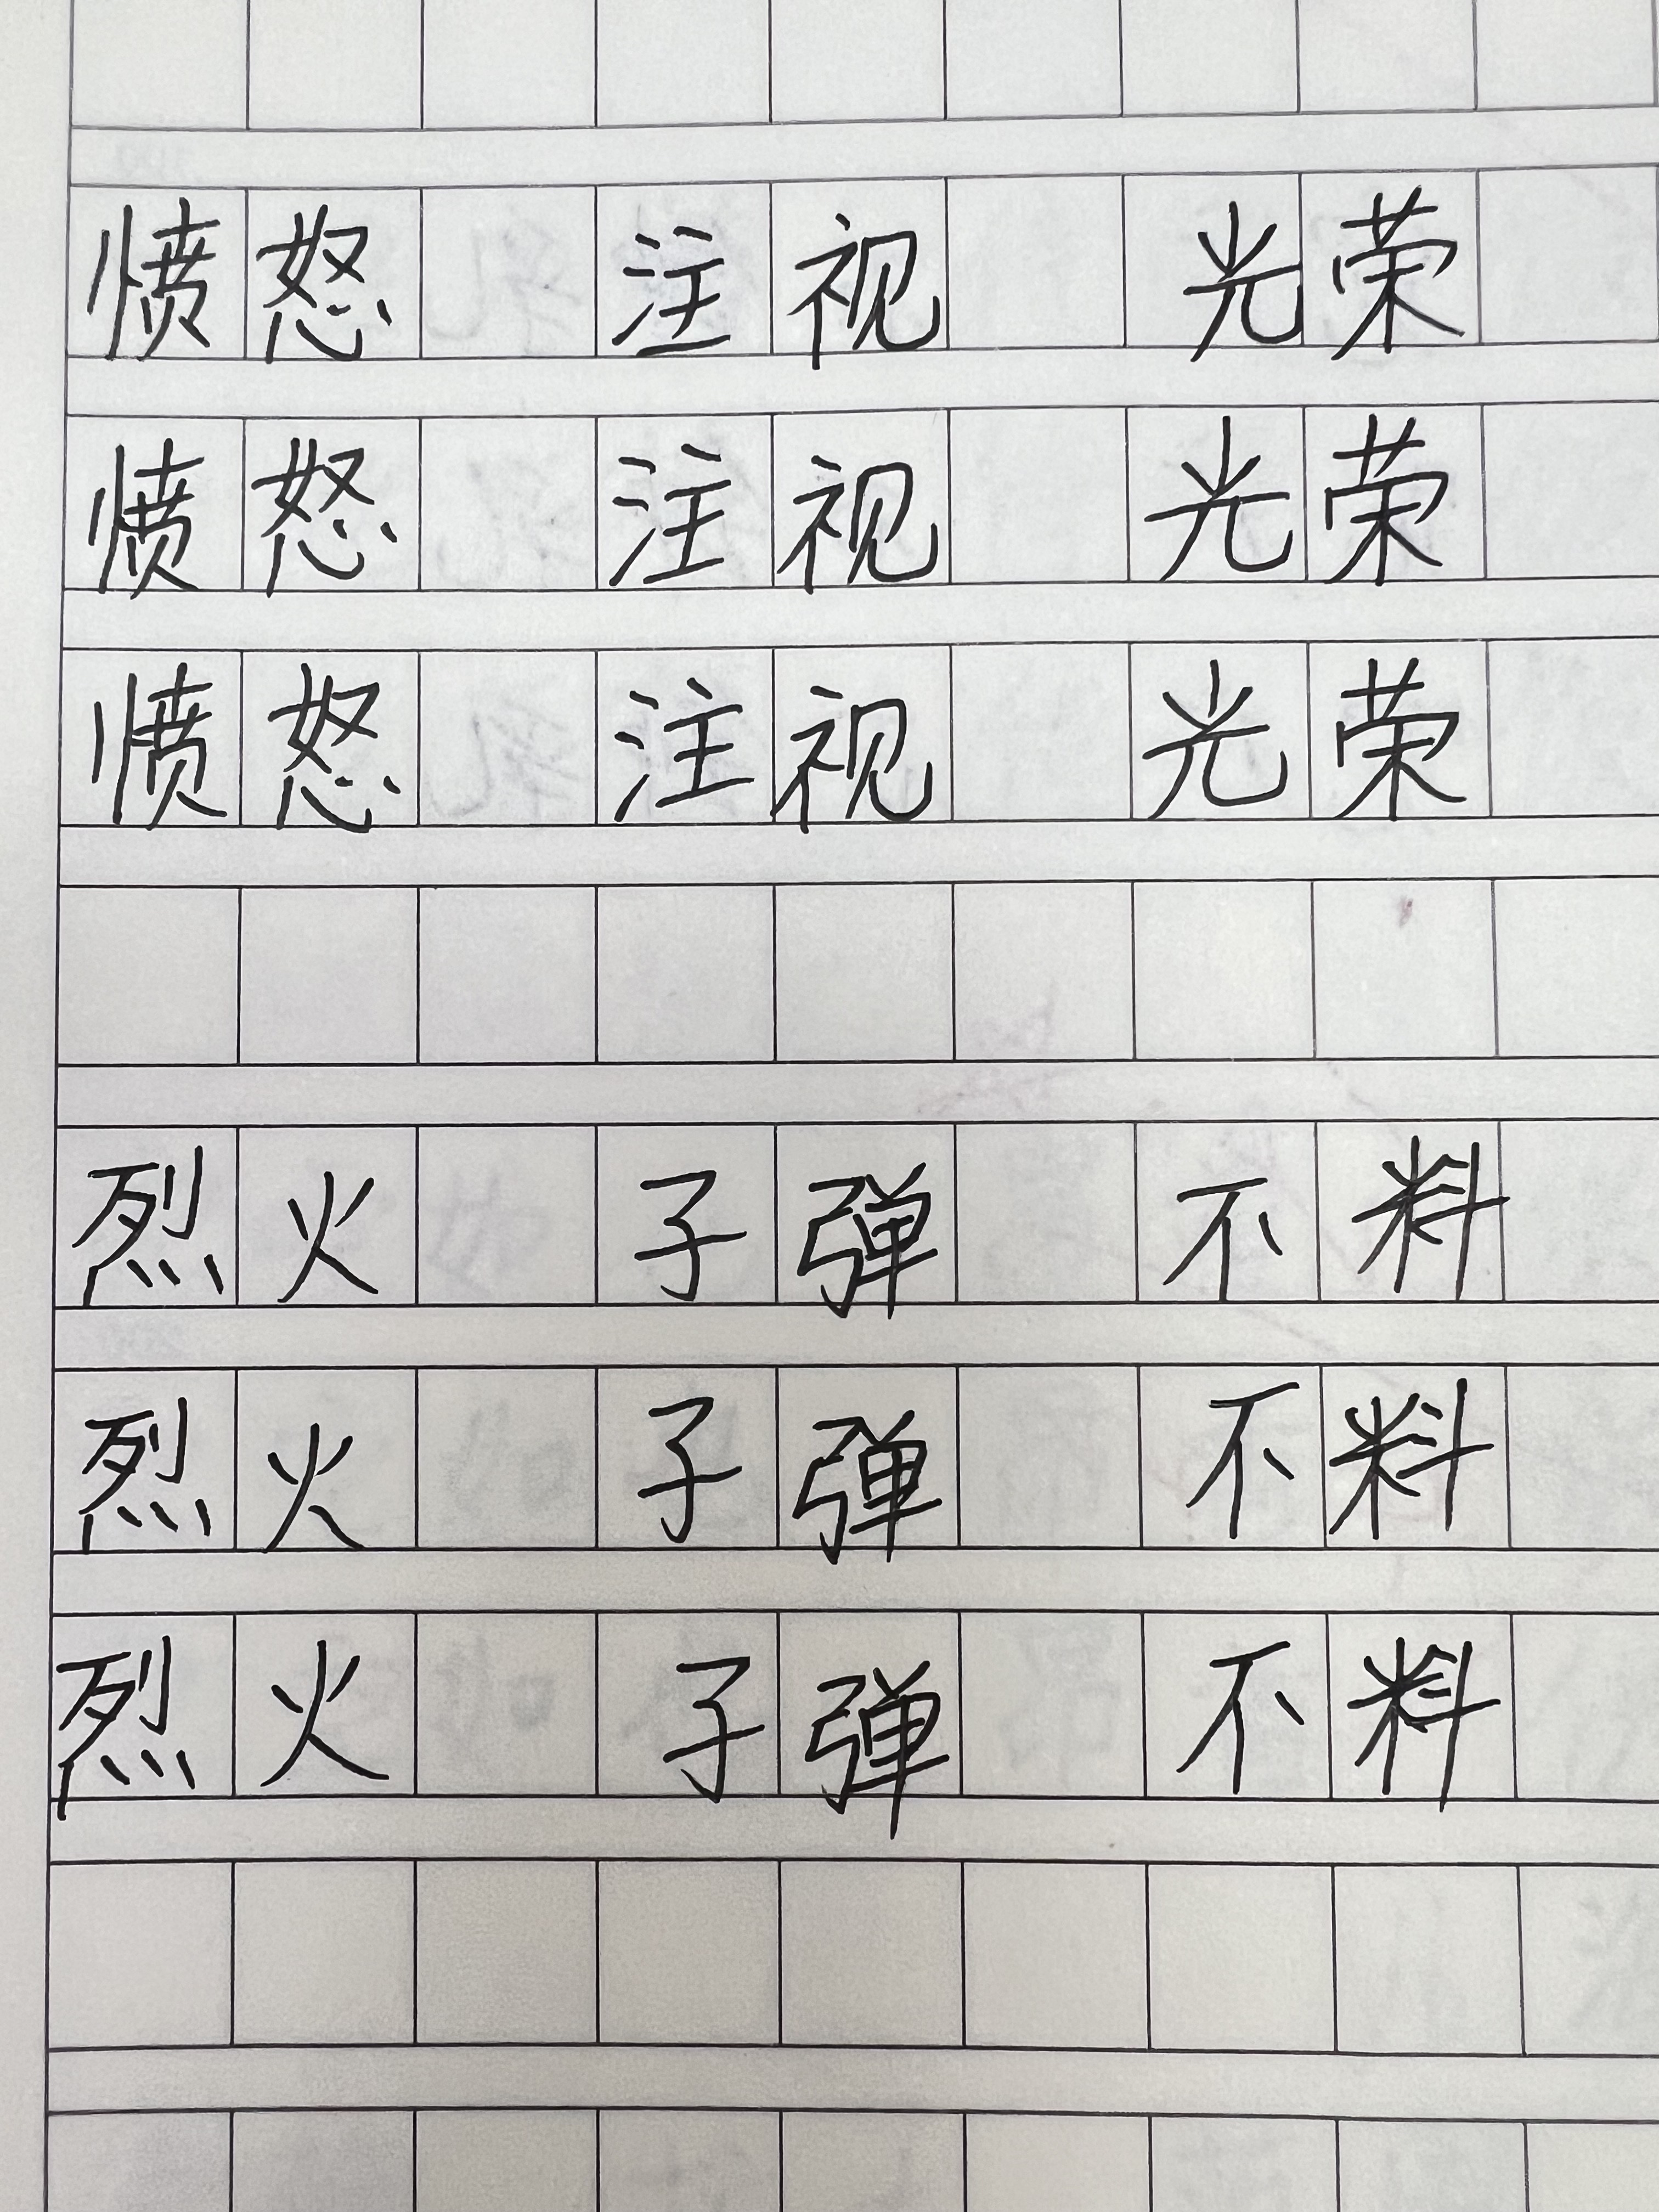 愤怒 注视 光荣
愤怒 注视 光荣
愤怒 注视 光荣
烈火 子弹 不料
烈火 子弹 不料
烈火 子弹 不料